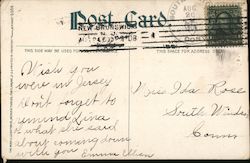 Post Card.
NEW BRUNSWICK
N.J.
THIS SIDE MAY BE USED FOR
THIS SPACE FOR ADDRESS
AUG
CONN
Wish you
were in Jersey
Don't forget to
remind
of what she said
about coming down
with you
Miss Ida Rose
South Windsor
Conn